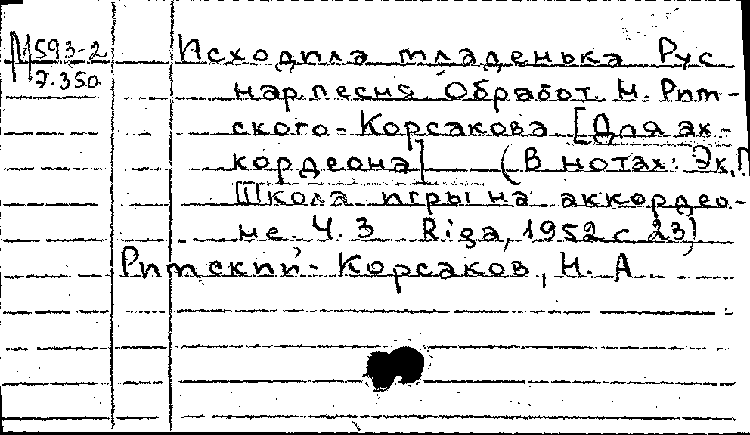 М 593-2
7.350
Исходила младенька Рус
нар песня Обработ. Н. Рим-
ского-Корсакова [Для ак-
кордеона] (В нотах: Эк, Г
Школа игры на аккордео-
не. Ч. 3 Riga, 1952 с 23)
Римский-Корсаков, Н. А